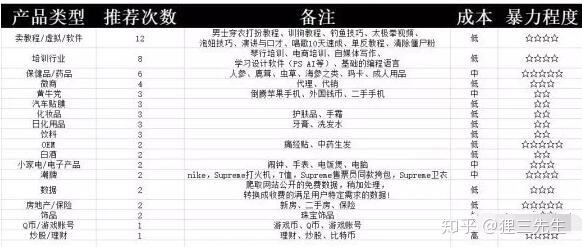 产品类型 推荐次数 备注 成本 暴力程度
卖教程/虚拟/软件 12 男士穿衣打扮教程、训狗教程、钓鱼技巧、太极拳视频、 低 ☆☆☆☆
泡妞技巧、演讲与口才、唱歌10天速成、单反教程、清除僵尸粉
培训行业 8 琴行培训、电商培训、自媒体写作、 低 ☆☆☆☆
学习设计软件(PS AI等)、基础的编程语言
保健品/药品 6 人参、鹿茸、虫草、海参之类、玛卡、成人用品 中 ☆☆☆☆☆
微商 4 代理、代销 低 ☆☆☆
黄牛党 3 倒腾苹果手机、外国钱币、二手手机 中 ☆☆
汽车贴膜 3 中 ☆☆
化妆品 3 护肤品、手霜 低 ☆☆☆
日化用品 3 牙膏、洗发水 低 ☆☆☆
饮料 3 低 ☆☆☆
OEM 2 痛经贴、中药生发 低 ☆☆☆☆☆
白酒 2 低 ☆☆☆☆
小家电/电子产品 2 闹钟、手表、电饭煲、电脑 中 ☆☆
潮牌 2 nike，Supreme打火机，T恤，Supreme售票员同款挎包，Supreme卫衣 中 ☆☆☆
数据 2 爬取网站公开的免费数据，稍加处理， 低 ☆☆☆☆
转换成收费的满足用户特定需求的数据！
房地产/保险 2 新房、二手房、保险 低 ☆☆☆☆☆
饰品 2 珠宝饰品 中
Q币/游戏账号 1 游戏币、Q币、游戏账号 低
炒股/理财 1 理财、炒股、比特币 高
知乎 @狸三先生